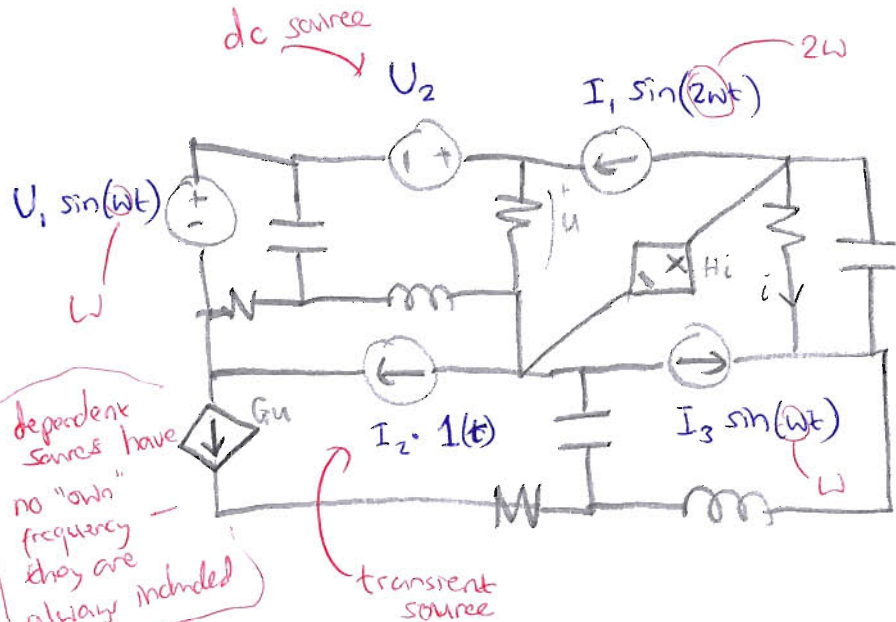 dc source
2ω
U2
I1 sin(2ωt)
U1 sin(ωt)
+
-
- +
+
u
Hi
i
ω
Gu
I2 · 1(t)
I3 sin(ωt)
ω
dependent
sources have
no "own"
frequency –
they are
always included
transient
source